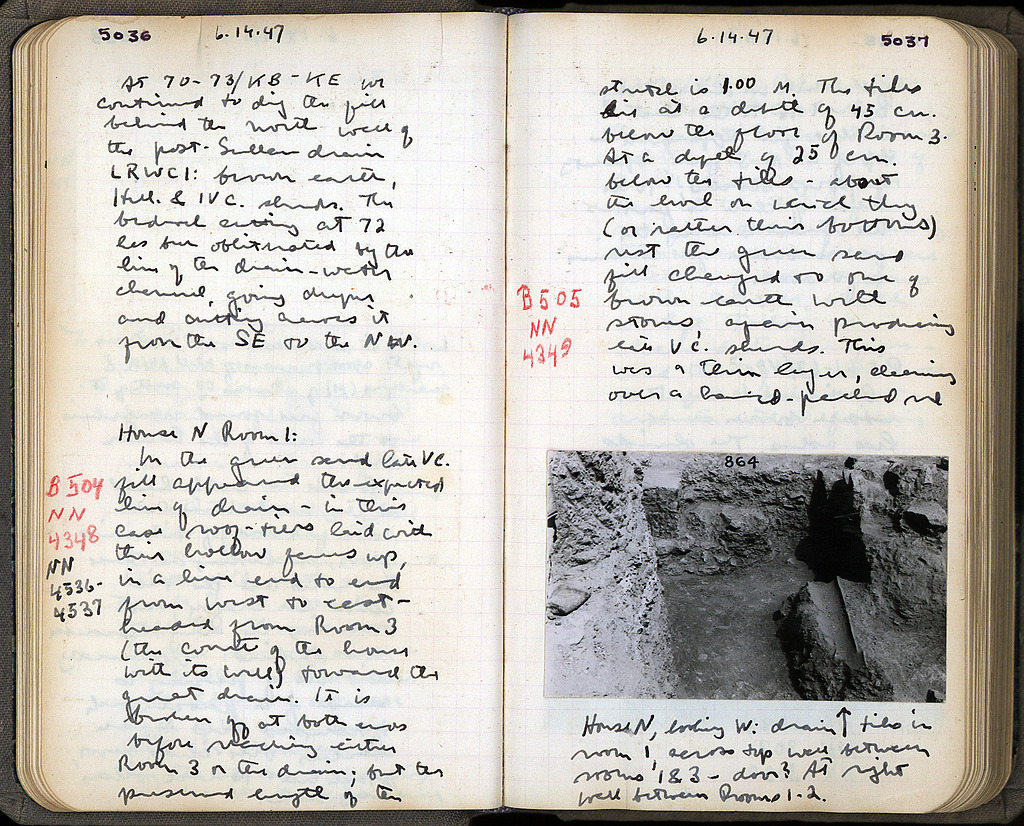 5036
6-14-47
At 70-73/KB-KE we
continued to dig the fill
behind the north wall of
the post-Sullan drain
LRWC1: brown earth,
Hell. & IVC. sherds. The
bedrock cutting at 72
has been obliterated by the
line of the drain-water
channel, going deeper
and cutting across it
from the SE to the NW.
House N Room 1:
In the green sand late VC.
fill appeared the expected
line of drain - in this
case roof-tiles laid with
their hollow faces up,
in a line end to end
from west to east -
headed from Room 3
(the court of the house
with its well) toward the
great drain. It is
broken off at both ends
before reaching either
Room 3 or the drain; but the
preserved length of the
B 504
NN
4348
NN
4536-
4537
6-14-47
5037
stretch is 1.00 M. The tiles
lie at a depth of 45 cm.
below the floor of Room 3.
At a depth of 25 cm.
below the tiles - about
the level on which they
(or rather their bottoms)
rest the green sand
fill changed to one of
brown earth with
stones, again producing
late VC. sherds. This
was a thin layer, cleaning
over a hard-packed red
B 505
NN
4349
864
House N, looking W: drain ↑ tiles in
room 1, across top wall between
rooms 1&3 - door? At right
wall between Rooms 1-2.